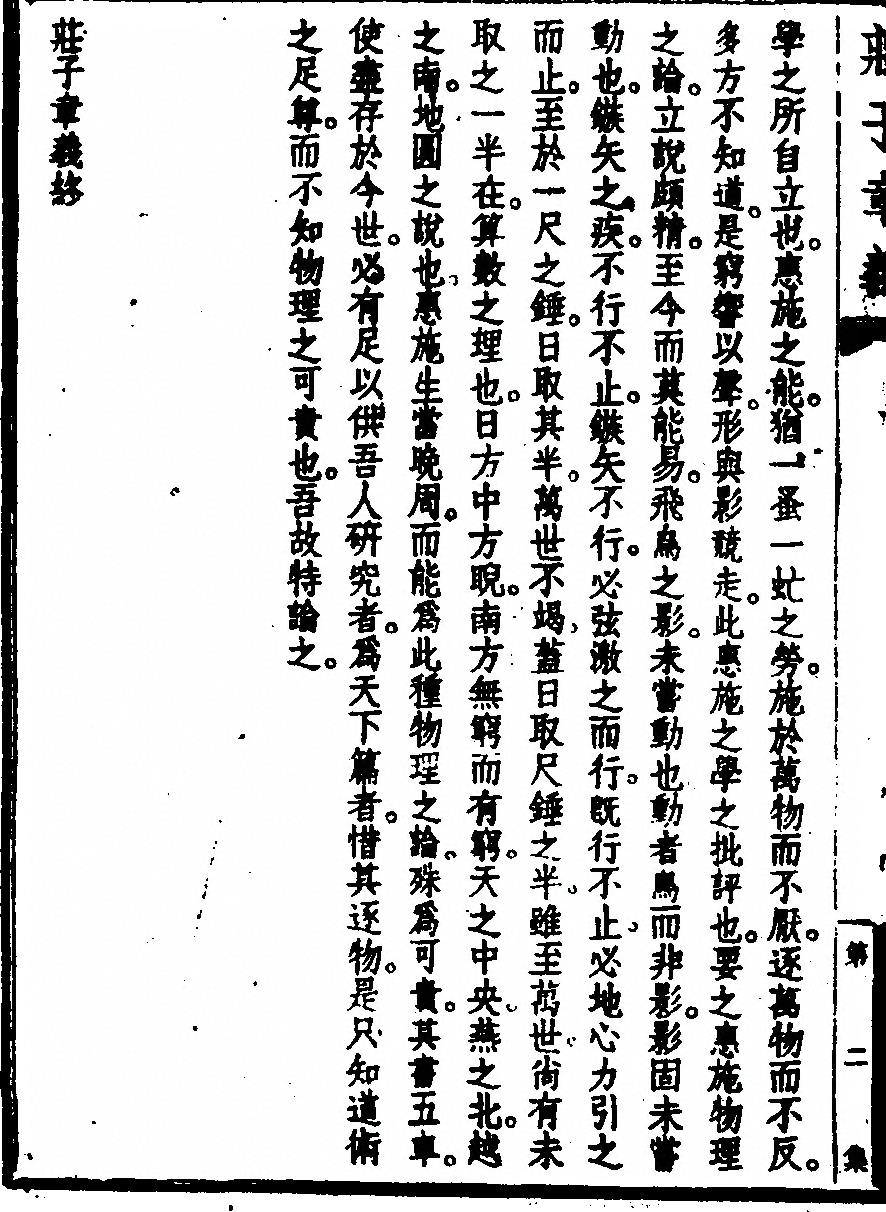 莊子章義
第二集
學之所自立也。惠施之能。猶一蚤一虻之勞。施於萬物而不厭。逐萬物而不反。
多方不知道。是窮響以聲。形與影競走。此惠施之學之批評也。要之惠施物理
之論。立說頗精。至今而莫能易。飛鳥之影。未嘗動也。動者鳥。而非影。影固未嘗
動也。鏃矢之疾。不行不止。鏃矢不行。必弦激之而行。既行不止。必地心力引之
而止。至於一尺之錘。日取其半。萬世不竭。蓋日取尺錘之半。雖至萬世。尙有未
取之一半在。算數之理也。日方中方睨。南方無窮而有窮。天之中央。燕之北。越
之南。地圓之說也。惠施生當晚周。而能爲此種物理之論。殊爲可貴。其書五車。
使盡存於今世。必有足以供吾人研究者。爲天下篇者。惜其逐物。是只知道術
之足尊。而不知物理之可貴也。吾故特論之。
莊子章義終